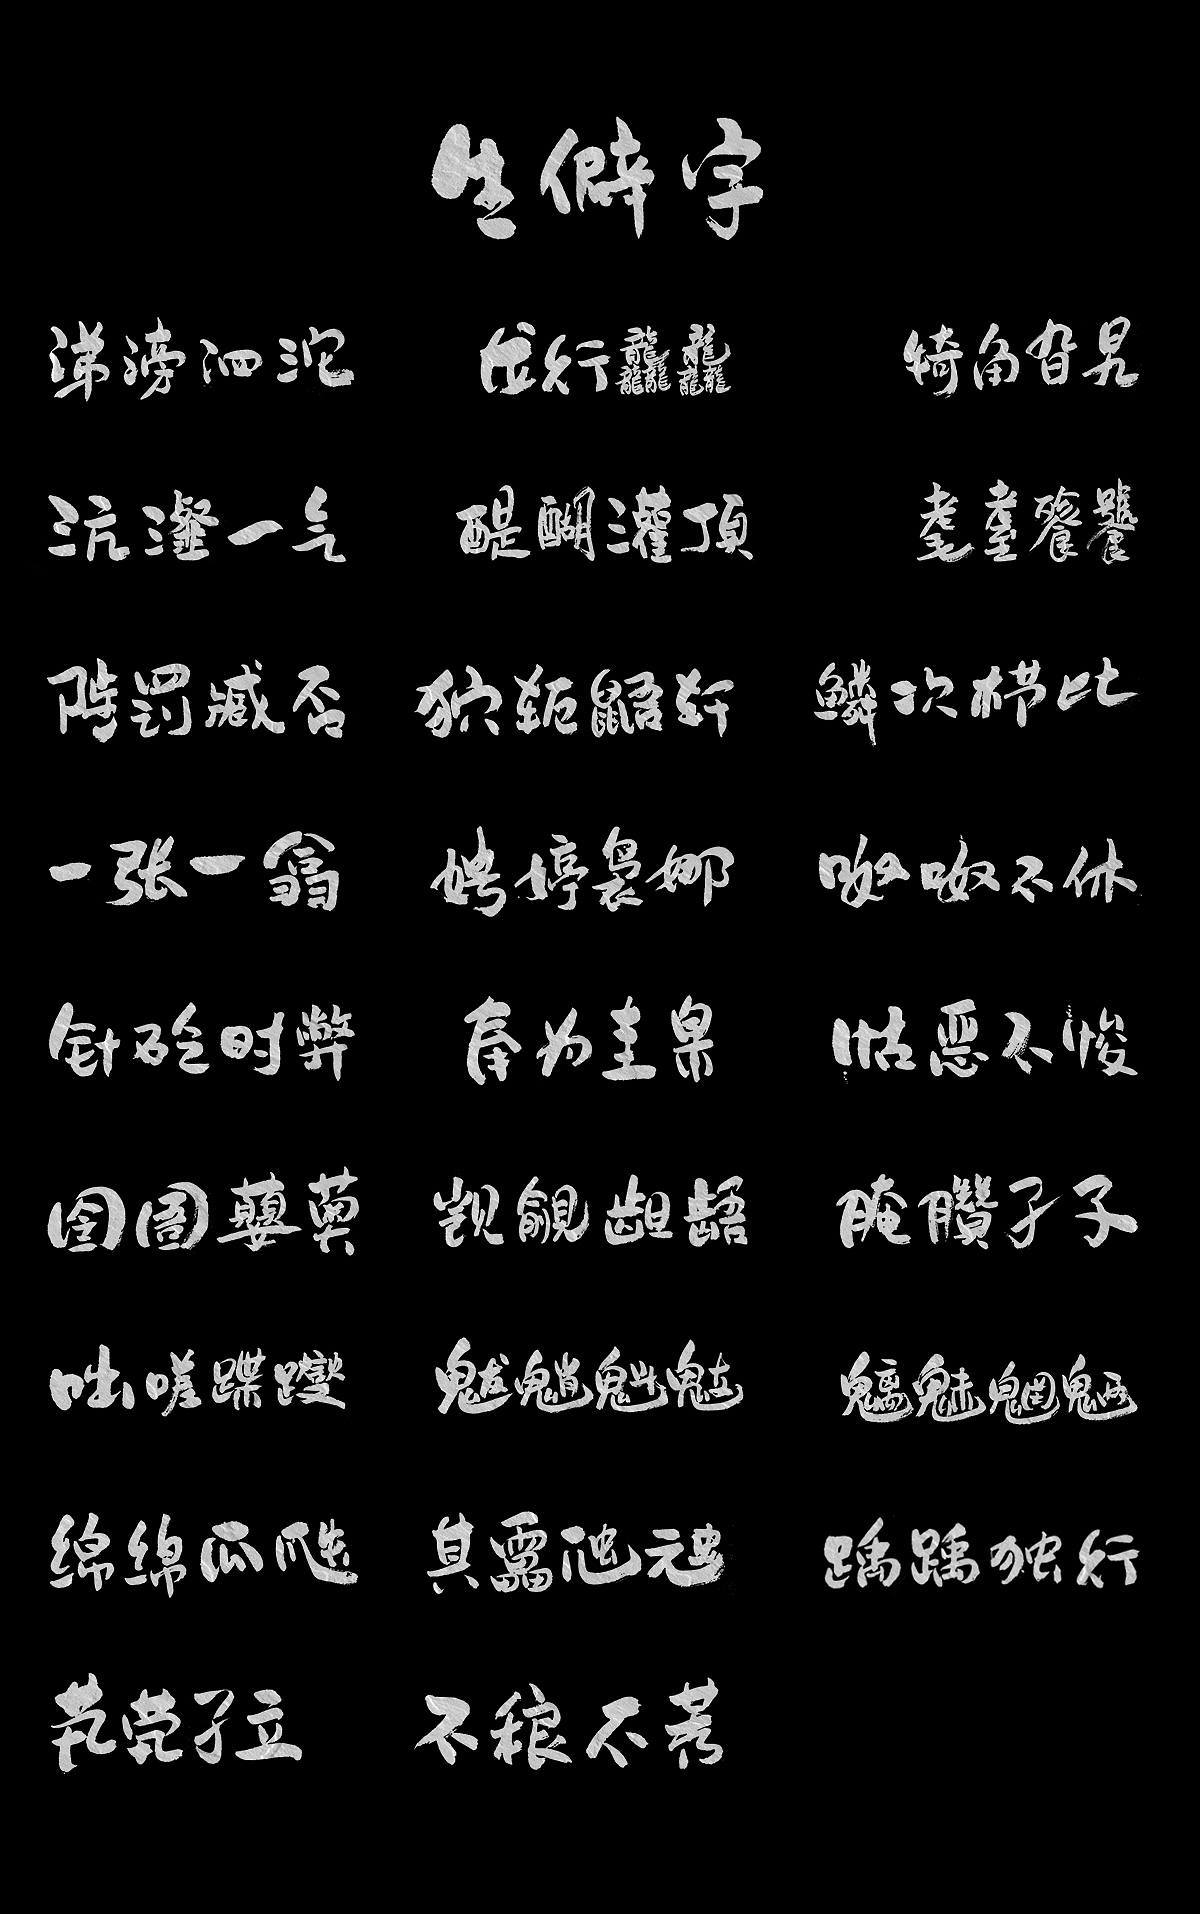 生僻字
涕滂泗沱 行龘龘 犄角旮旯
沆瀣一气 醍醐灌顶 耄耋饕餮
陟罚臧否 狖轭鼯轩 鳞次栉比
一张一翕 娉婷袅娜 呶呶不休
针砭时弊 奉为圭臬 怙恶不悛
囹圄蘡薁 觊觎龃龉 腌臜孑孓
咄嗟蹀躞 魃魈魁鬾 魑魅魍魉
绵绵瓜瓞 其靁虺虺 踽踽独行
茕茕孑立 不稂不莠